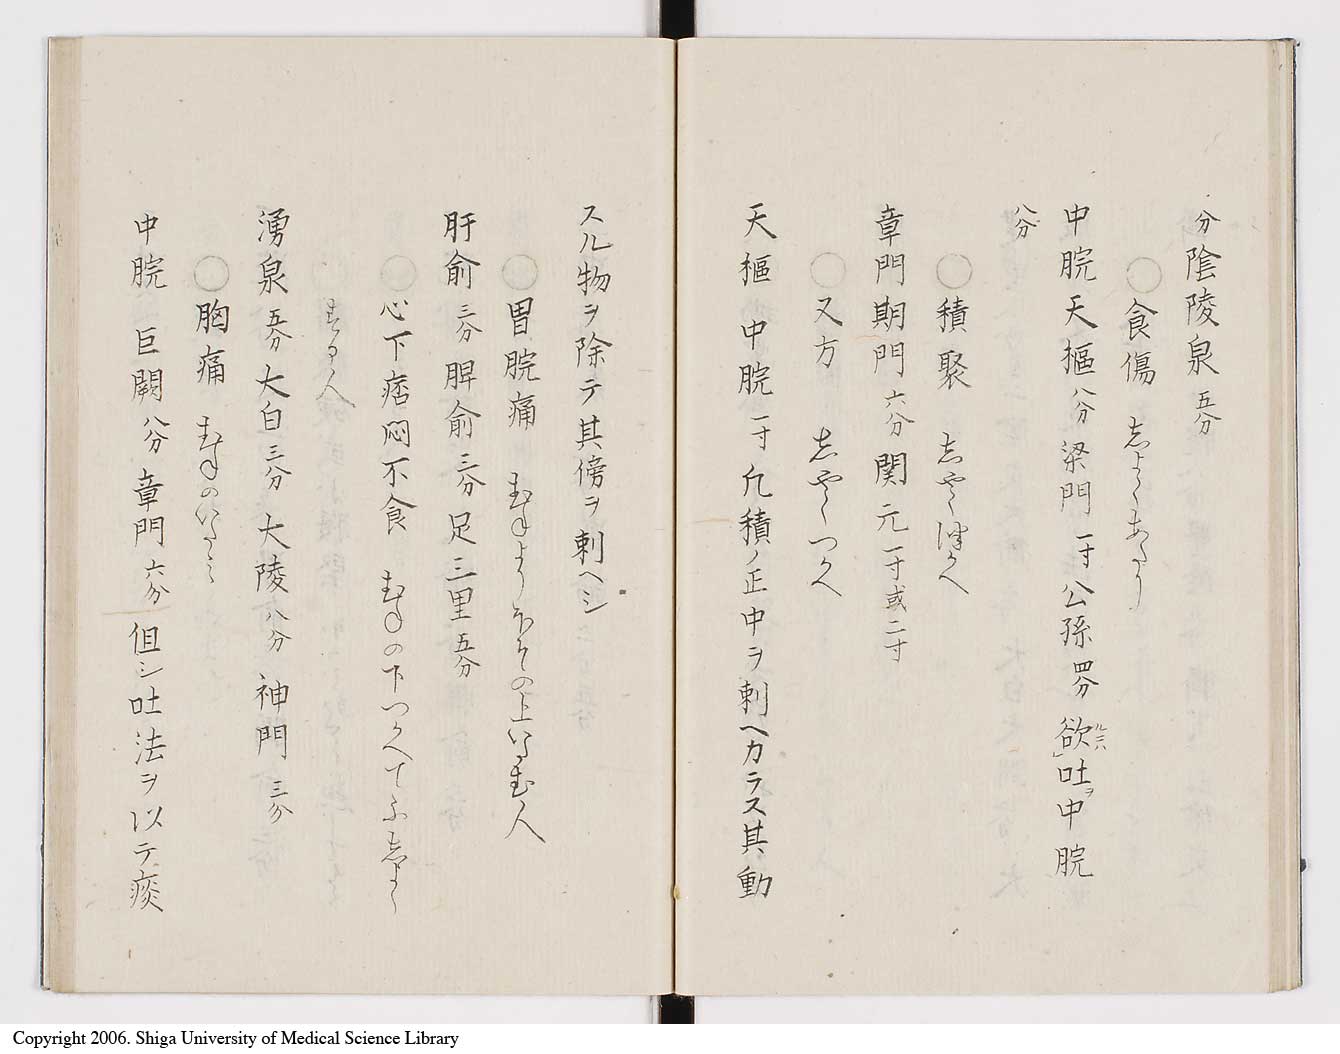 分陰陵泉五分
〇食傷 志よくあたり
中脘天樞八分梁門一寸公孫四分欲ルニハ吐ヲ中脘
八分
〇積聚 志やくつかへ
章門期門六分関元一寸或二寸
〇又方 志やくつかへ
天樞中脘一寸凢積ノ正中ヲ刺ヘカラス其動
スル物ヲ除テ其傍ヲ刺ヘシ
〇胃脘痛 むねよりほその上いたむ人
肝俞三分脾俞三分足三里五分
〇心下痞悶不食 むねの下つかへてふ志よく
する人
湧泉五分大白三分大陵八分神門三分
〇胸痛 むねのいたミ
中脘巨闕八分章門六分但シ吐法ヲ以テ痰
Copyright 2006. Shiga University of Medical Science Library